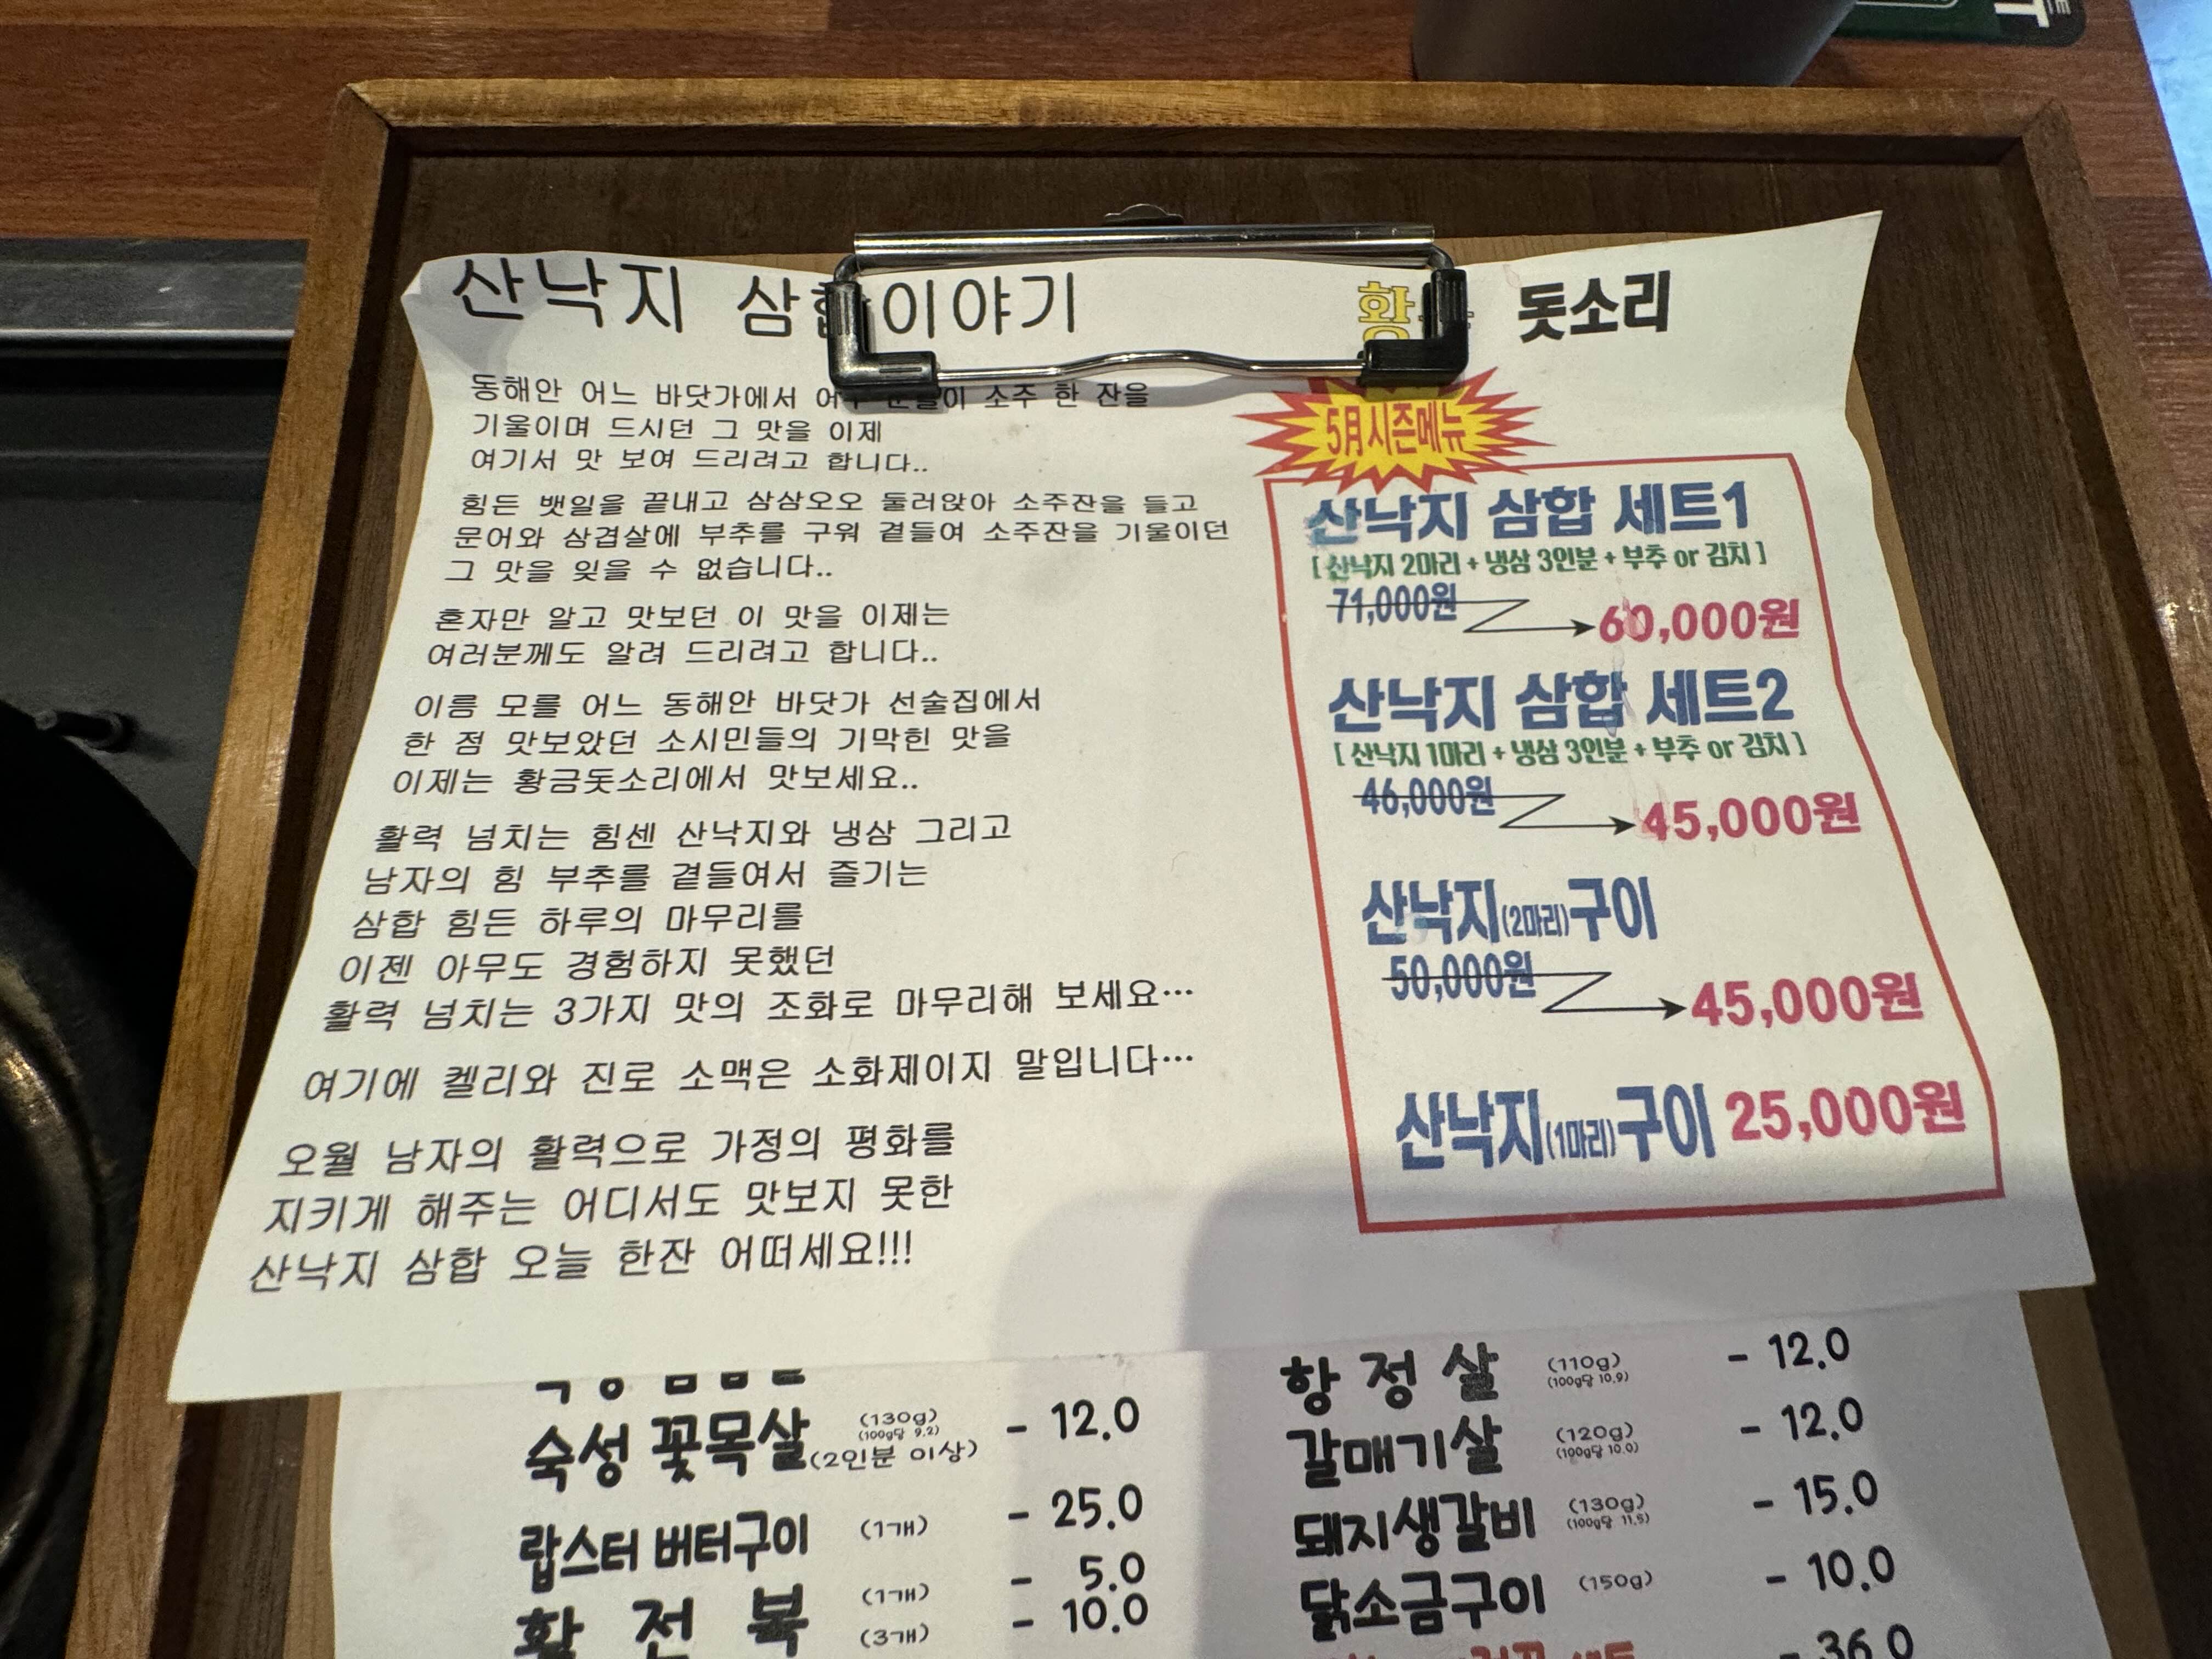 산낙지 삼합 이야기
동해안 어느 바닷가에서 어부 분들이 소주 한 잔을
기울이며 드시던 그 맛을 이제
여기서 맛 보여 드리려고 합니다..
힘든 뱃일을 끝내고 삼삼오오 둘러앉아 소주잔을 들고
문어와 삼겹살에 부추를 구워 곁들여 소주잔을 기울이던
그 맛을 잊을 수 없습니다..
혼자만 알고 맛보던 이 맛을 이제는
여러분께도 알려 드리려고 합니다..
이름 모를 어느 동해안 바닷가 선술집에서
한 점 맛보았던 소시민들의 기막힌 맛을
이제는 황금돗소리에서 맛보세요..
활력 넘치는 힘센 산낙지와 냉삼 그리고
남자의 힘 부추를 곁들여서 즐기는
삼합 힘든 하루의 마무리를
이젠 아무도 경험하지 못했던
활력 넘치는 3가지 맛의 조화로 마무리해 보세요…
여기에 켈리와 진로 소맥은 소화제이지 말입니다…
오월 남자의 활력으로 가정의 평화를
지키게 해주는 어디서도 맛보지 못한
산낙지 삼합 오늘 한잔 어떠세요!!!
돗소리
5月시즌메뉴
산낙지 삼합 세트1
[ 산낙지 2마리 + 냉삼 3인분 + 부추 or 김치 ]
71,000원 60,000원
산낙지 삼합 세트2
[ 산낙지 1마리 + 냉삼 3인분 + 부추 or 김치 ]
46,000원 45,000원
산낙지(2마리)구이
50,000원 45,000원
산낙지(1마리)구이 25,000원
숙성 꽃목살 (130g) - 12.0
(100g당 9.2)
(2인분 이상)
랍스터 버터구이 (1개) - 25.0
활 전 복 (1개) - 5.0
(3개) - 10.0
항 정 살 (110g) - 12.0
(100g당 10.9)
갈매기살 (120g) - 12.0
(100g당 10.0)
돼지생갈비 (130g) - 15.0
(100g당 11.5)
닭소금구이 (150g) - 10.0
- 36.0